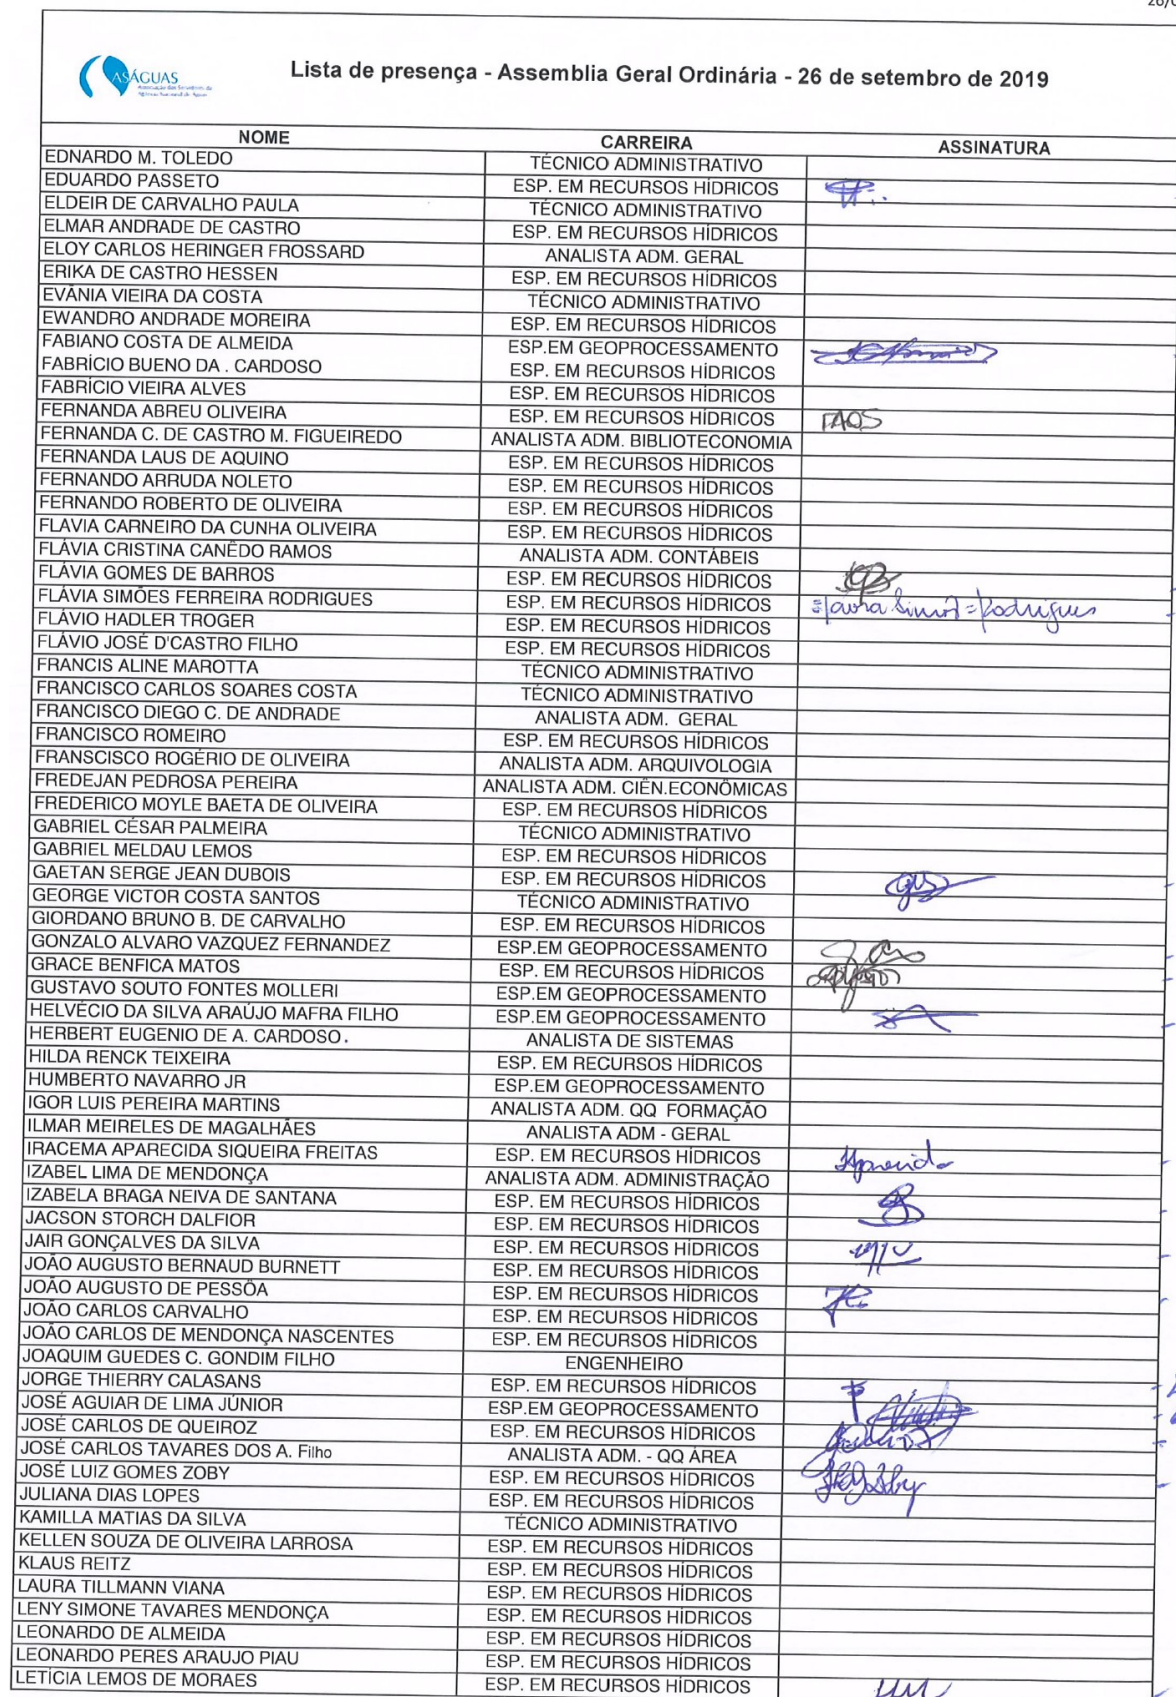 ASÁGUAS
Lista de presença - Assemblia Geral Ordinária - 26 de setembro de 2019
NOME CARREIRA ASSINATURA
EDNARDO M. TOLEDO TÉCNICO ADMINISTRATIVO
EDUARDO PASSETO ESP. EM RECURSOS HÍDRICOS
ELDEIR DE CARVALHO PAULA TÉCNICO ADMINISTRATIVO
ELMAR ANDRADE DE CASTRO ESP. EM RECURSOS HÍDRICOS
ELOY CARLOS HERINGER FROSSARD ANALISTA ADM. GERAL
ERIKA DE CASTRO HESSEN ESP. EM RECURSOS HÍDRICOS
EVÂNIA VIEIRA DA COSTA TÉCNICO ADMINISTRATIVO
EWANDRO ANDRADE MOREIRA ESP. EM RECURSOS HÍDRICOS
FABIANO COSTA DE ALMEIDA ESP.EM GEOPROCESSAMENTO
FABRÍCIO BUENO DA . CARDOSO ESP. EM RECURSOS HÍDRICOS
FABRÍCIO VIEIRA ALVES ESP. EM RECURSOS HÍDRICOS
FERNANDA ABREU OLIVEIRA ESP. EM RECURSOS HÍDRICOS FAOS
FERNANDA C. DE CASTRO M. FIGUEIREDO ANALISTA ADM. BIBLIOTECONOMIA
FERNANDA LAUS DE AQUINO ESP. EM RECURSOS HÍDRICOS
FERNANDO ARRUDA NOLETO ESP. EM RECURSOS HÍDRICOS
FERNANDO ROBERTO DE OLIVEIRA ESP. EM RECURSOS HÍDRICOS
FLAVIA CARNEIRO DA CUNHA OLIVEIRA ESP. EM RECURSOS HÍDRICOS
FLÁVIA CRISTINA CANÊDO RAMOS ANALISTA ADM. CONTÁBEIS
FLÁVIA GOMES DE BARROS ESP. EM RECURSOS HÍDRICOS
FLÁVIA SIMÕES FERREIRA RODRIGUES ESP. EM RECURSOS HÍDRICOS Rodrigues
FLÁVIO HADLER TROGER ESP. EM RECURSOS HÍDRICOS
FLÁVIO JOSÉ D'CASTRO FILHO ESP. EM RECURSOS HÍDRICOS
FRANCIS ALINE MAROTTA TÉCNICO ADMINISTRATIVO
FRANCISCO CARLOS SOARES COSTA TÉCNICO ADMINISTRATIVO
FRANCISCO DIEGO C. DE ANDRADE ANALISTA ADM. GERAL
FRANCISCO ROMEIRO ESP. EM RECURSOS HÍDRICOS
FRANSCISCO ROGÉRIO DE OLIVEIRA ANALISTA ADM. ARQUIVOLOGIA
FREDEJAN PEDROSA PEREIRA ANALISTA ADM. CIÊN.ECONÔMICAS
FREDERICO MOYLE BAETA DE OLIVEIRA ESP. EM RECURSOS HÍDRICOS
GABRIEL CÉSAR PALMEIRA TÉCNICO ADMINISTRATIVO
GABRIEL MELDAU LEMOS ESP. EM RECURSOS HÍDRICOS
GAETAN SERGE JEAN DUBOIS ESP. EM RECURSOS HÍDRICOS
GEORGE VICTOR COSTA SANTOS TÉCNICO ADMINISTRATIVO
GIORDANO BRUNO B. DE CARVALHO ESP. EM RECURSOS HÍDRICOS
GONZALO ALVARO VAZQUEZ FERNANDEZ ESP.EM GEOPROCESSAMENTO
GRACE BENFICA MATOS ESP. EM RECURSOS HÍDRICOS
GUSTAVO SOUTO FONTES MOLLERI ESP.EM GEOPROCESSAMENTO
HELVÉCIO DA SILVA ARAÚJO MAFRA FILHO ESP.EM GEOPROCESSAMENTO
HERBERT EUGENIO DE A. CARDOSO. ANALISTA DE SISTEMAS
HILDA RENCK TEIXEIRA ESP. EM RECURSOS HÍDRICOS
HUMBERTO NAVARRO JR ESP.EM GEOPROCESSAMENTO
IGOR LUIS PEREIRA MARTINS ANALISTA ADM. QQ FORMAÇÃO
ILMAR MEIRELES DE MAGALHÃES ANALISTA ADM - GERAL
IRACEMA APARECIDA SIQUEIRA FREITAS ESP. EM RECURSOS HÍDRICOS
IZABEL LIMA DE MENDONÇA ANALISTA ADM. ADMINISTRAÇÃO
IZABELA BRAGA NEIVA DE SANTANA ESP. EM RECURSOS HÍDRICOS
JACSON STORCH DALFIOR ESP. EM RECURSOS HÍDRICOS
JAIR GONÇALVES DA SILVA ESP. EM RECURSOS HÍDRICOS
JOÃO AUGUSTO BERNAUD BURNETT ESP. EM RECURSOS HÍDRICOS
JOÃO AUGUSTO DE PESSÔA ESP. EM RECURSOS HÍDRICOS
JOÃO CARLOS CARVALHO ESP. EM RECURSOS HÍDRICOS
JOÃO CARLOS DE MENDONÇA NASCENTES ESP. EM RECURSOS HÍDRICOS
JOAQUIM GUEDES C. GONDIM FILHO ENGENHEIRO
JORGE THIERRY CALASANS ESP. EM RECURSOS HÍDRICOS
JOSÉ AGUIAR DE LIMA JÚNIOR ESP.EM GEOPROCESSAMENTO
JOSÉ CARLOS DE QUEIROZ ESP. EM RECURSOS HÍDRICOS
JOSÉ CARLOS TAVARES DOS A. Filho ANALISTA ADM. - QQ ÁREA
JOSÉ LUIZ GOMES ZOBY ESP. EM RECURSOS HÍDRICOS
JULIANA DIAS LOPES ESP. EM RECURSOS HÍDRICOS
KAMILLA MATIAS DA SILVA TÉCNICO ADMINISTRATIVO
KELLEN SOUZA DE OLIVEIRA LARROSA ESP. EM RECURSOS HÍDRICOS
KLAUS REITZ ESP. EM RECURSOS HÍDRICOS
LAURA TILLMANN VIANA ESP. EM RECURSOS HÍDRICOS
LENY SIMONE TAVARES MENDONÇA ESP. EM RECURSOS HÍDRICOS
LEONARDO DE ALMEIDA ESP. EM RECURSOS HÍDRICOS
LEONARDO PERES ARAUJO PIAU ESP. EM RECURSOS HÍDRICOS
LETÍCIA LEMOS DE MORAES ESP. EM RECURSOS HÍDRICOS